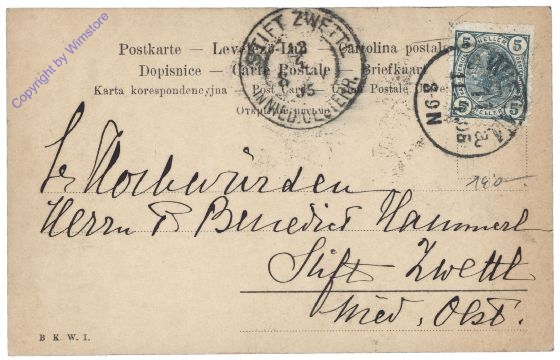 Copyright by Wimstore
Postkarte — Levelező-Lap — Cartolina postale
Dopisnice — Carte Postale — Briefkaart
Karta korespondencyjna — Post Card — Union Postale Universelle
STIFT ZWETTL
IN NIED. OESTERR.
5 5
HELLER HELLER
5 5
WIEN
8-9N
180
Sr Hochwürden
Herrn P Benedict Hammerl
Stift Zwettl
Nied. Öst.
B. K. W. I.